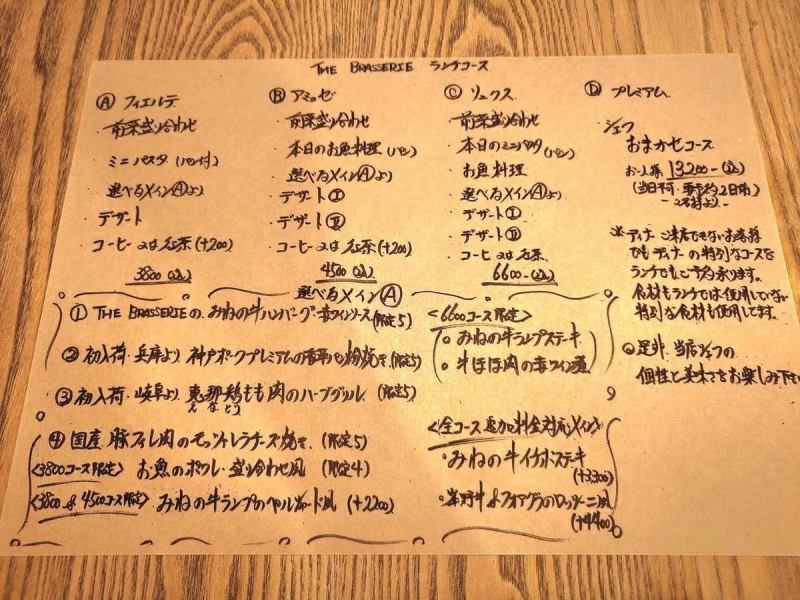 THE BRASSERIE ランチコース
Ⓐ フィエルテ
・前菜盛り合わせ
・ミニパスタ (パン付)
・選べるメインⒶより
・デザート
・コーヒー又は紅茶 (+200)
3800-(込)
Ⓑ アミュゼ
・前菜盛り合わせ
・本日のお魚料理 (パン)
・選べるメインⒶより
・デザートⅠ
・デザートⅡ
・コーヒー又は紅茶 (+200)
4500-(込)
Ⓒ リュクス
・前菜盛り合わせ
・本日のミニパスタ (パン)
お魚料理
・選べるメインⒶより
・デザートⅠ
・デザートⅡ
・コーヒー又は紅茶
6600-(込)
Ⓓ プレミアム
・シェフ
おまかせコース
お一人様 13200-(込)
(当日不可・要予約2日前)
-2名様より-
※ディナーご来店できないお客様
でもディナーの特別なコースを
ランチでもご予約承ります。
食材もランチでは使用していない
特別な食材も使用してます。
◎是非、当店シェフの
個性と美味さをお楽しみ下さい
選べるメインⒶ
① THE BRASSERIEの、みねの牛ハンバーグ・赤ワインソース (限定5)
② 初入荷・兵庫より 神戸ポークプレミアムの香草パン粉焼き (限定5)
③ 初入荷・岐阜より 恵那鶏もも肉のハーブグリル (限定5)
えなどり
④ 国産 豚フィレ肉のモッツァレラチーズ焼き (限定5)
<3800コース限定> お魚のポワレ・盛り合わせ風 (限定4)
<3800 & 4500コース限定> みねの牛ランプのペルシャード風 (+2200)
<6600コース限定>
○ みねの牛ランプステーキ
○ 牛ほほ肉の赤ワイン煮
<全コース追加料金対応メイン>
・みねの牛イチボステーキ
(+3300)
・峯野牛&フォアグラのロッシーニ風
(+4400)